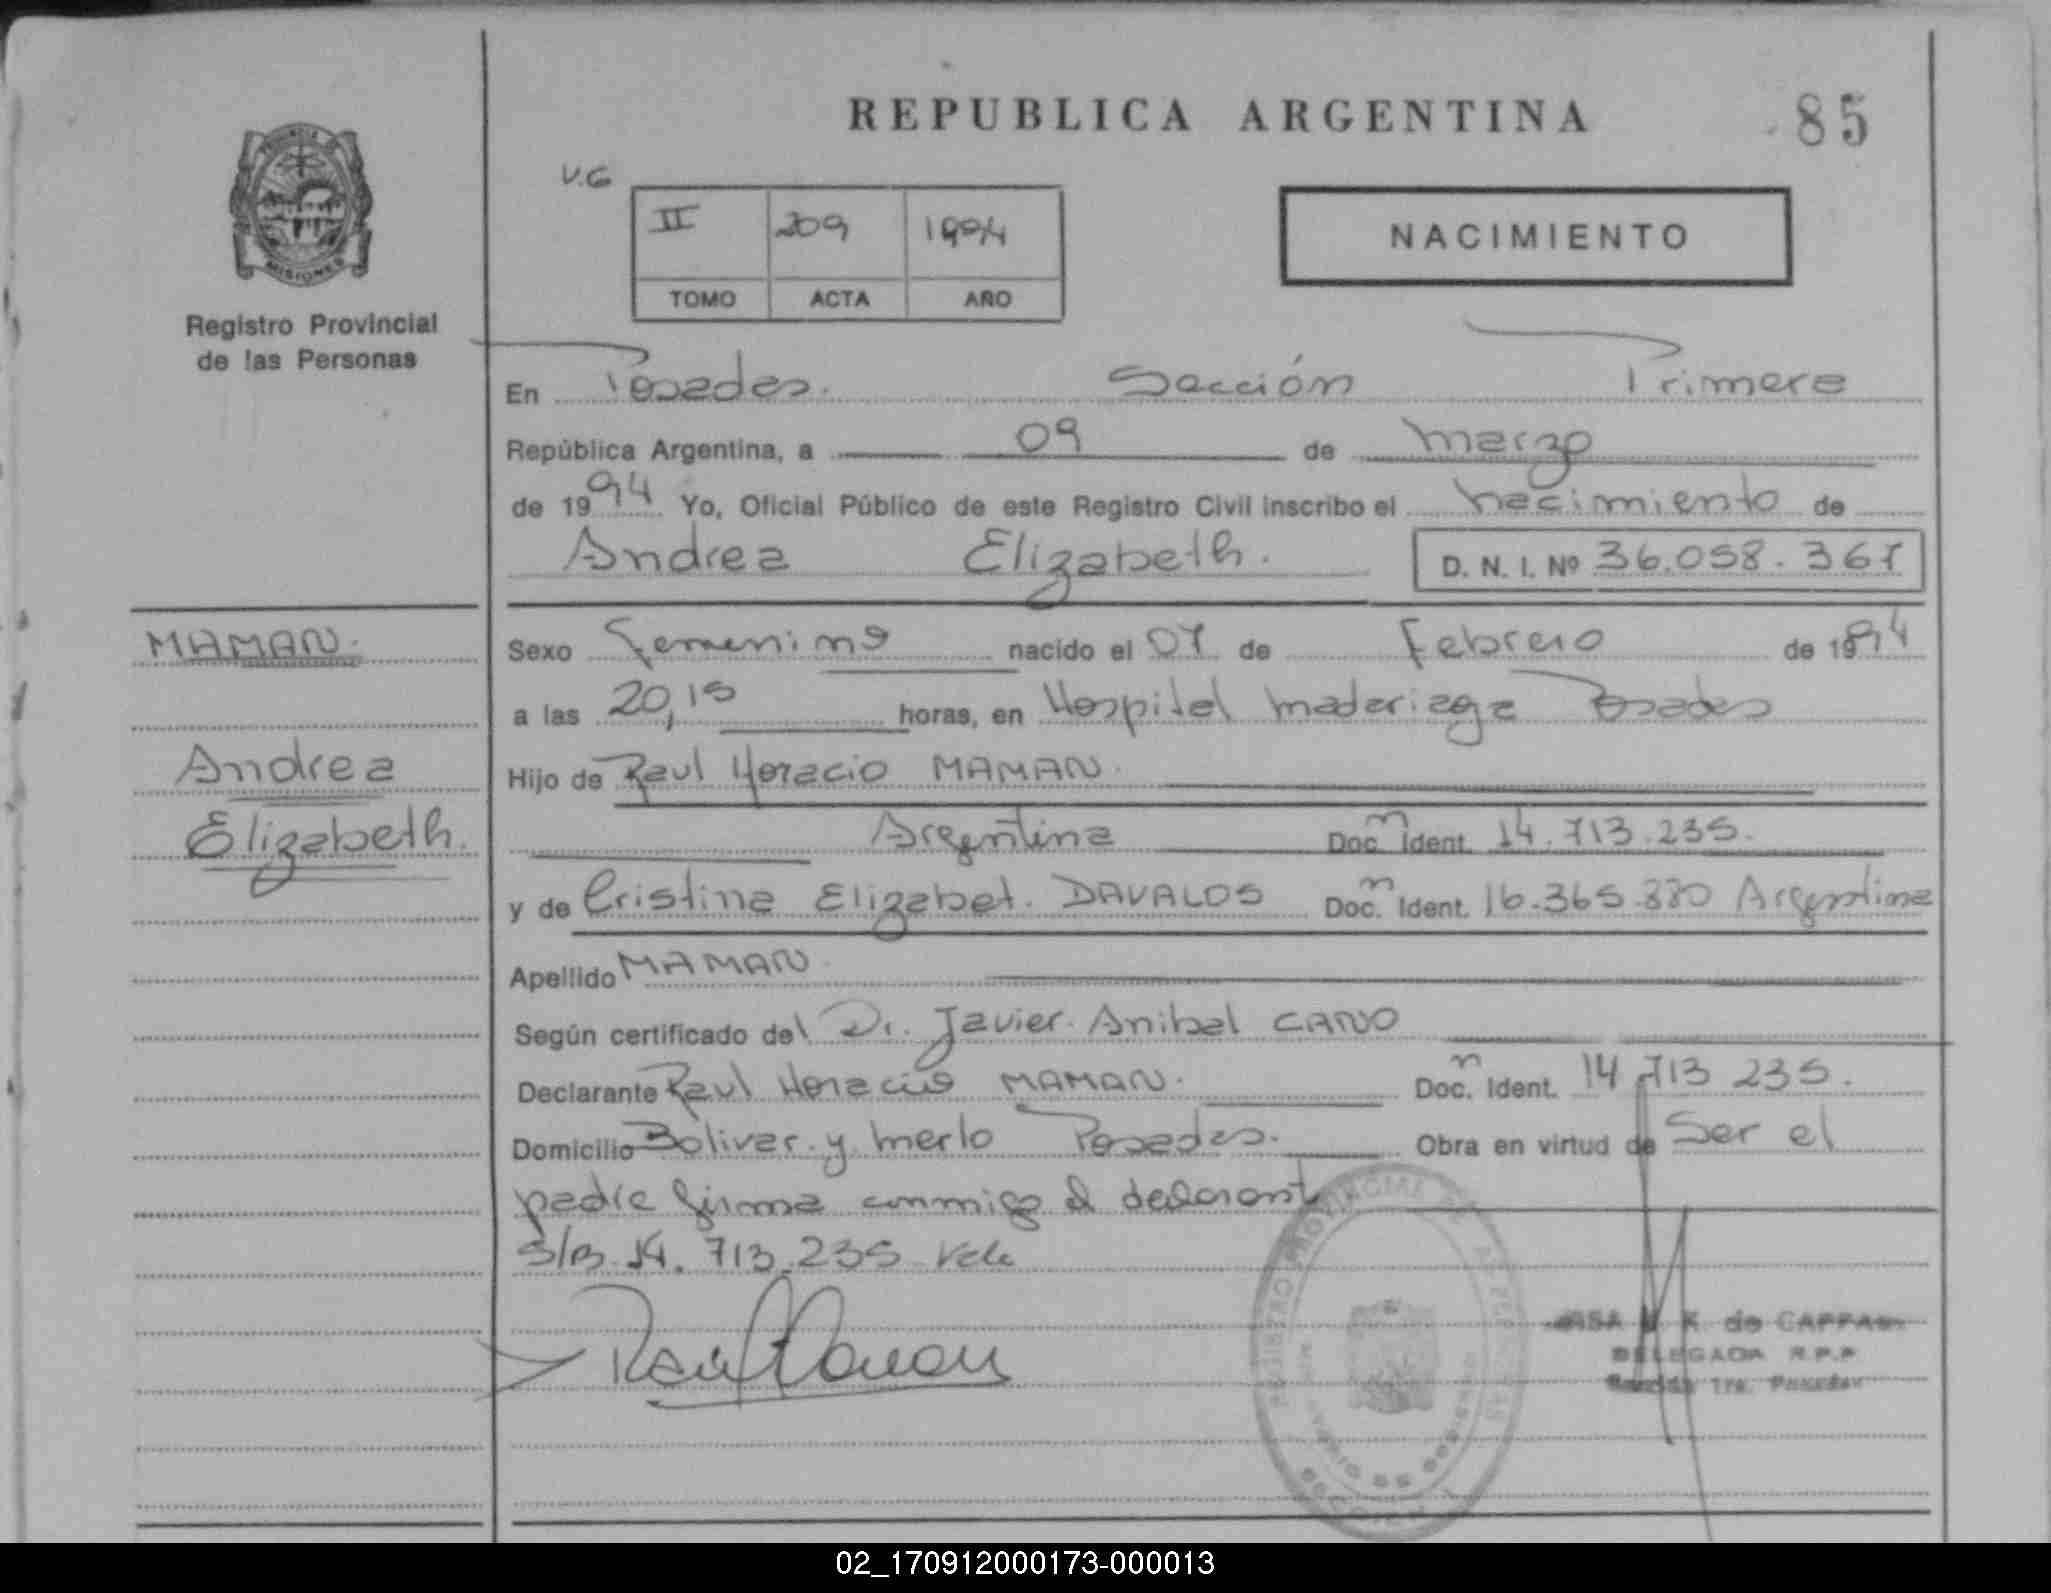 REPUBLICA ARGENTINA
85
PROVINCIA
MISIONES
Registro Provincial
de las Personas
V.G
II 209 1994
TOMO ACTA AÑO
NACIMIENTO
En Posadas. Sección Primera
República Argentina, a 09 de marzo
de 1994 Yo, Oficial Público de este Registro Civil inscribo el nacimiento de
Andrea Elizabeth. D. N. I. Nº 36.058.367
MAMAN.
Andrea
Elizabeth.
Sexo Femenino nacido el 07 de Febrero de 1994
a las 20,15 horas, en Hospital Madariaga Posadas
Hijo de Raul Horacio MAMAN.
Argentina Doc. Ident. 14.713.235.
y de Cristina Elizabet. DAVALOS Doc. Ident. 16.365.880 Argentina
Apellido MAMAN.
Según certificado del Dr. Javier Anibal CANO
Declarante Raul Horacio MAMAN. Doc. Ident. 14.713 235.
Domicilio Bolivar y Merlo Posadas. Obra en virtud de Ser el
padre firma conmigo el declarant
S/B 14. 713.235 Vale
de CAPPA
DELEGADA R.P.P
Sección 1ra. Posadas
REGISTRO PROVINCIAL DE LAS PERSONAS
02_170912000173-000013